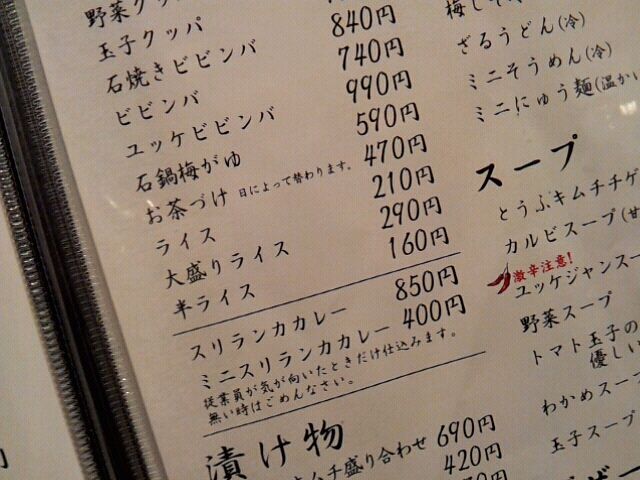 野菜クッパ
玉子クッパ
石焼きビビンバ 840円
ビビンバ 740円
ユッケビビンバ 990円
石鍋梅がゆ 590円
お茶づけ 日によって替わります。 470円
ライス 210円
大盛りライス 290円
半ライス 160円
スリランカカレー 850円
ミニスリランカカレー 400円
従業員が気が向いたときだけ仕込みます。
無い時はごめんなさい。
漬け物
キムチ盛り合わせ 690円
420円
ざるうどん(冷)
ミニそうめん(冷)
ミニにゅう麺(温かい
スープ
とうふキムチチゲ
カルビスープ(甘
激辛注意!
ユッケジャンスー
野菜スープ
トマト玉子の
優しい
わかめスープ
玉子スープ